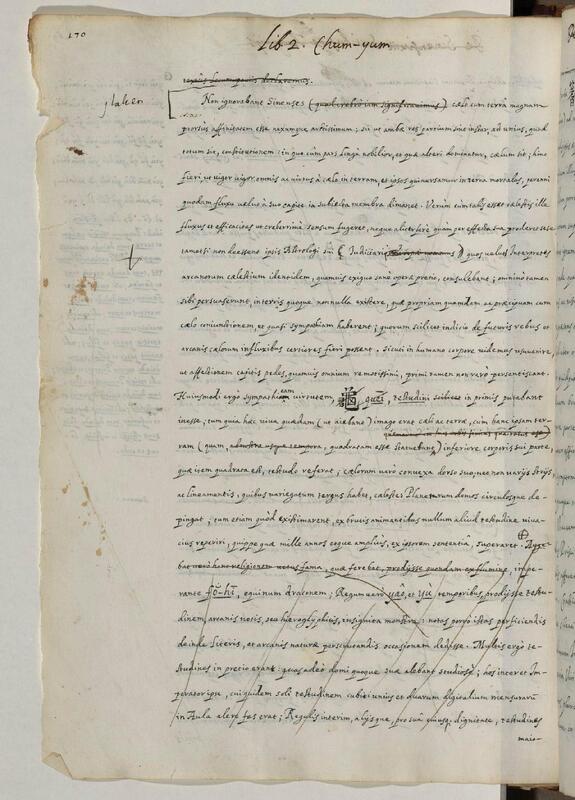 170
Lib 2. Chum-yum
Non ignorabant Sinenses (quod crebrò iam significavimus) cælo cum terrâ magnam
prorsus affinitatem esse nexumque arctissimum; sic ut ambæ res partium sint instar, ad unius, quod
totum sit, constitutionem: in quo cùm pars longè nobilior, et quæ alteri dominatur, cælum sit; hinc
fieri, ut vigor omnis ac virtus à cælo in terram, et ipsos qui versamur in terra mortales, perenni
quodam fluxu velut à suo capite in subiecta membra dimanet. Verùm cùm talis esset cælestis ille
fluxus et efficacitas ut creberrimè sensum fugeret, neque aliter ferè quàm per effecta sua proderet sese
tametsi non deessent ipsis Astrologi sui (Judiciarios) quos velut Interpretes
arcanorum cælestium identidem, quamvis exiguo sanè operæ pretio, consulebant; omnino tamen
sibi persuaserunt, in terris quoque non nulla existere, quæ propriam quamdam ac præcipuam cum
cælo coniunctionem, et quasi sympathiam haberent; quorum scilicet indicio de futuris rebus et
arcanis cælorum influxibus certiores fieri possent. Sicuti in humano corpore videmus usuvenire,
ut affectionem capitis pedes, quamvis omnium remotissimi, primi tamen non rarò persentiscant.
Huiusmodi ergo sympathicam virtutem, 龜 quēi, testudini scilicet in primis putabant
inesse; tum quia hæc viva quædam (ut aiebant) imago erat cæli ac terræ, cùm hanc ipsam ter-
ram (quam, quadratam esse statuebant) inferiore corporis sui parte,
quæ item quadrata est, testudo referat; cælorum verò convexa dorso suo; nec non varijs strijs
ac lineamentis, quibus variegatum tergus habet, cælestes Planetarum domos circulosque de-
pingat; tum etiam quòd existimarent, ex brutis animantibus nullum aliud testudine viva-
cius reperiri, quippe quæ mille annos eoque ampliùs, ex ipsorum sententia, superaret.
vetus fama, quæ ferebat, prodijsse quondam ex flumine, impe-
rante fŏ-hī, equinum draconem; Regum verò yâo, et yù temporibus, prodijsse testu-
dinem, arcanis notis, seu hieroglyphicis, insignem monstrè; notas porrò istas perficiendis
deinde literis, et arcanis naturæ perscrutandis occasionem dedisse. Multis ergo te-
studines in pretio erant: quas adeò domi quoque suæ alebant studiosè; hos inter et Im-
perator ipse, cui quidem soli testudinem cubiti unius et duarum digitalium mensurarum
in Aula alere fas erat; Regulis interim, alijsque, pro suâ cuiusque dignitate, testudines
maio-